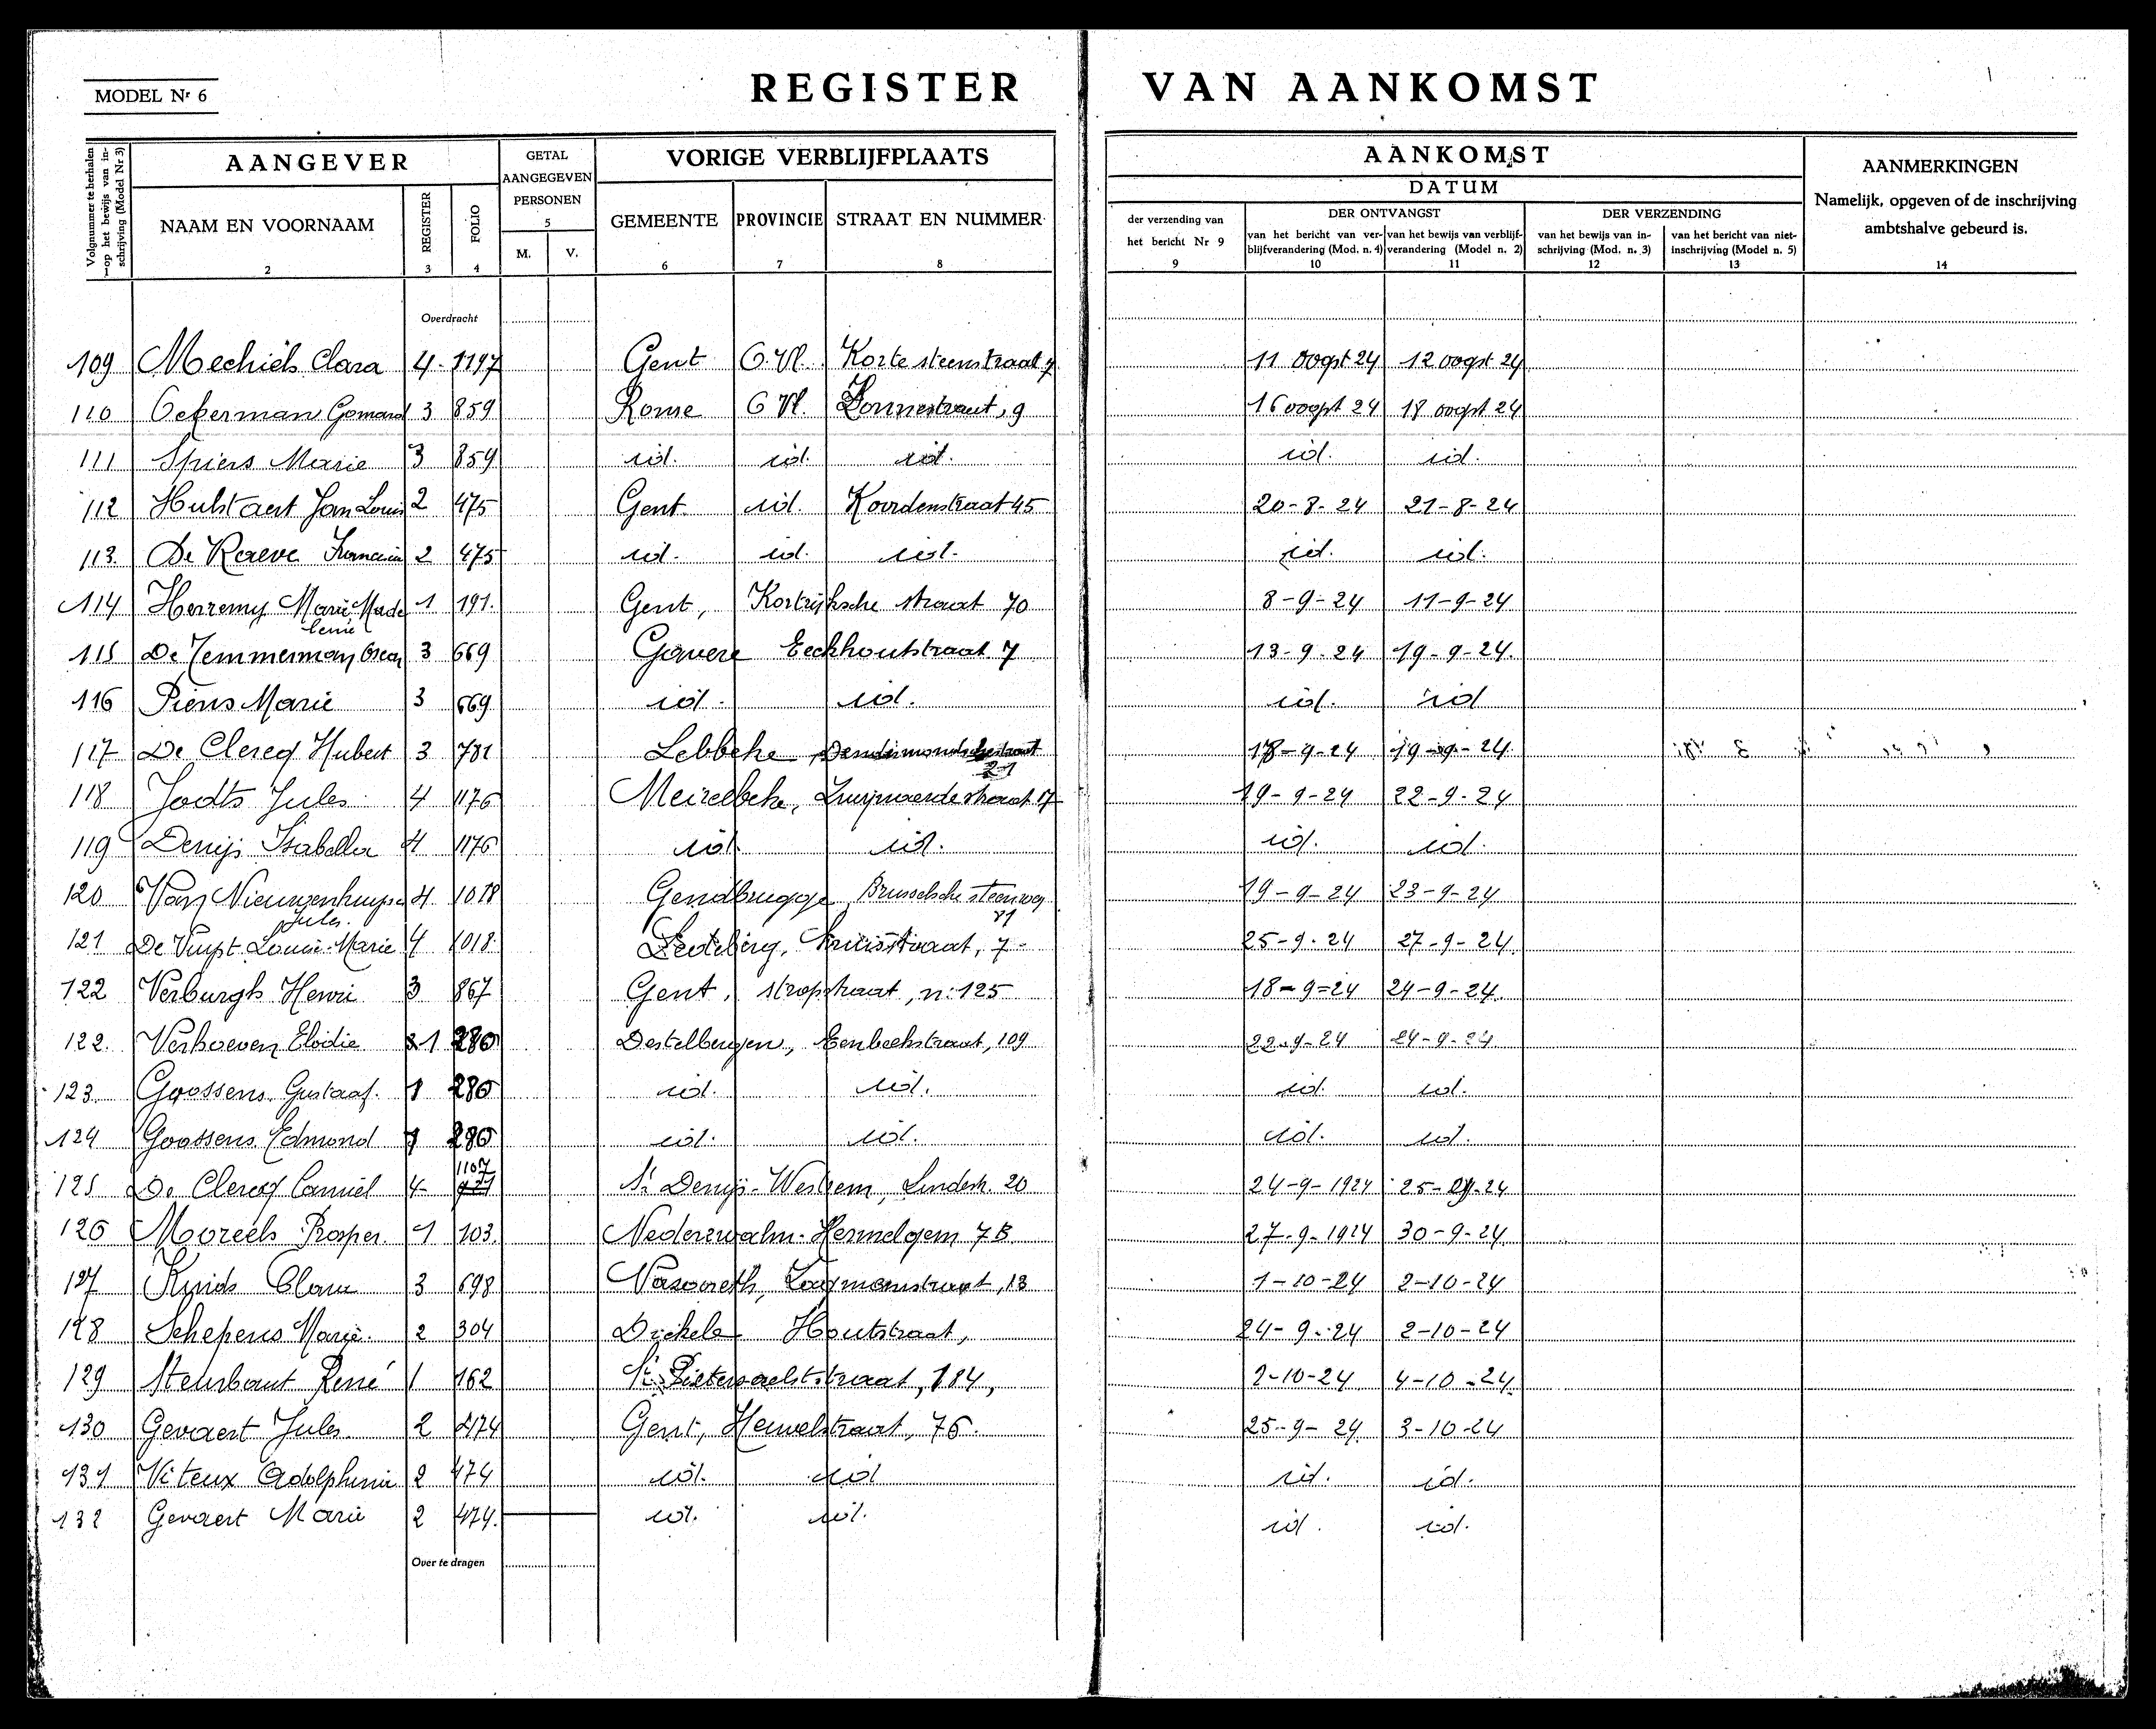 MODEL Nr 6
REGISTER VAN AANKOMST
Volgnummer te herhalen op het bewijs van inschrijving (Model Nr 3)
AANGEVER
GETAL AANGEGEVEN PERSONEN
5
VORIGE VERBLIJFPLAATS
AANKOMST
DATUM
AANMERKINGEN
Namelijk, opgeven of de inschrijving
ambtshalve gebeurd is.
NAAM EN VOORNAAM REGISTER FOLIO M. V. GEMEENTE PROVINCIE STRAAT EN NUMMER
der verzending van het bericht Nr 9
DER ONTVANGST
van het bericht van verblijfverandering (Mod. n. 4) van het bewijs van verblijfverandering (Model n. 2)
DER VERZENDING
van het bewijs van inschrijving (Mod. n. 3) van het bericht van niet-inschrijving (Model n. 5)
1 2 3 4 6 7 8 9 10 11 12 13 14
Overdracht
109 Mechiels Clara 4 1197 Gent O.Vl. Korte steenstraat 7 11 oogst 24 12 oogst 24
110 Ockerman Gomard 3 859 Ronse O Vl. 9 16 oogst 24 18 oogst 24
111 Spiers Marie 3 859 id. id. id. id. id.
112 Hulstaert Jan Louis 2 475 Gent id. Koordenstraat 45 20-8-24 21-8-24
113. De Raeve 2 475 id. id. id. id. id.
114 Herremy Marie Madeleine 1 191. Gent, Kortrijksche straat 70 8-9-24 11-9-24
115 De Temmerman Oscar 3 669 Gavere Eeckhoutstraat 7 13-9-24 19-9-24.
116 Piens Marie 3 669 id. id. id. id
117 De Clercq Hubert 3 781 Lebbeke, Dendermondschestraat 21 18-9-24 19-9-24.
118 Jodts Jules 4 1176 Meirelbeke, straat 17 19-9-24 22-9-24
119 Denijs Isabella 4 1176 id. id. id. id.
120 Van Nieuwenhuyse Jules. 4 1018 Gendbrugge Brusselsche steenweg 81 19-9-24 23-9-24
121 De Vuyst Louise-Marie 4 1018 Ledeberg, Kruisstraat, 7 25-9-24 27-9-24.
122 Verburgh Henri 3 867 Gent, stropstraat, n: 125 18-9=24 24-9-24.
122. Verhoeven Elodie 1 280 Destelbergen, Eenbeekstraat, 109 22-9-24 24-9-24
123. Goossens Gustaaf. 1 280 id. id. id. id.
124 Goossens Edmond 1 280 id. id. id. id.
125 De Clercq Camiel 4 1107 St Denijs-Westrem, Lindestr. 20 24-9-1924 25-9-24
126 Moreels Prosper. 1 103. Nederzwalm-Hermelgem 7B 27-9-1924 30-9-24.
127 3 698 Nazareth, 13 1-10-24 2-10-24
128 Schepens Marie. 2 304 Dickele Houtstraat, 24-9-24 2-10-24
129 Steurbaut René 1 162 St Pietersaelststraat, 184, 2-10-24 4-10-24.
130 Gevaert Jules. 2 474 Gent, Heuvelstraat, 76. 25-9-24 3-10-24
131 Viteux Adolphine 2 474 id. id id. id.
132 Gevaert Marie 2 474. id. id. id. id.
Over te dragen